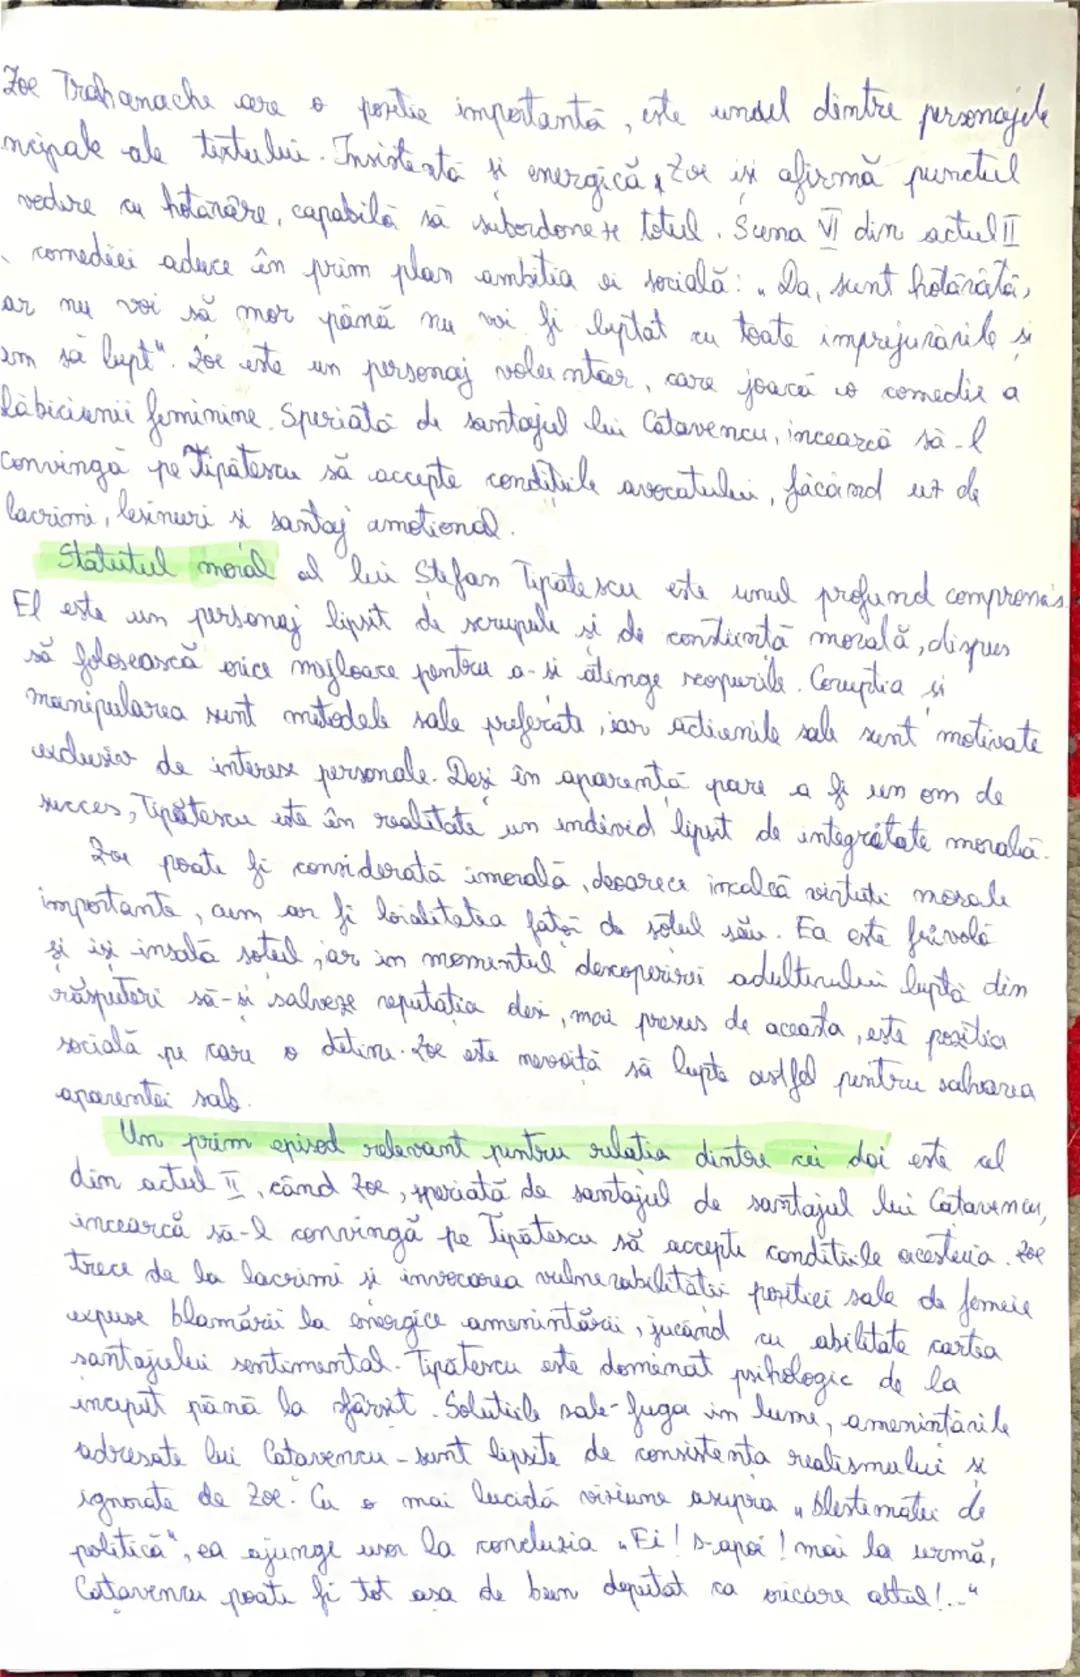 Zoe Trahanache are o poziție importantă, este unul dintre personajele
ncipale ale textului. Insistentă și energică, Zoe își afirmă punctul
vedere cu hotărâre, capabilă să subordoneze totul. Scena VI din actul II
comediei aduce în prim plan ambiția ei socială: „Da, sunt hotărâtă,
ar nu voi să mor până nu voi fi luptat cu toate împrejurările și
em să lupt". Zoe este un personaj voluntar, care joacă o comedie a
lăbiciunii feminine. Speriată de santajul lui Cațavencu, încearcă să-l
convingă pe Tipătescu să accepte condițiile avocatului, făcând uz de
lacrimi, leșinuri și santaj emoțional.
Statutul moral al lui Ștefan Tipătescu este unul profund compromis.
El este un personaj lipsit de scrupule și de conștiință morală, dispus
să folosească orice mijloace pentru a-și atinge scopurile. Corupția și
manipularea sunt metodele sale preferate, iar acțiunile sale sunt motivate
exclusiv de interese personale. Deși în aparență pare a fi un om de
succes, Tipătescu este în realitate un individ lipsit de integritate morală.
Zoe poate fi considerată imorală, deoarece încalcă virtuți morale
importante, cum ar fi loialitatea față de soțul său. Ea este frivolă
și își înșală soțul, iar în momentul descoperirii adulterului luptă din
răsputeri să-și salveze reputația deși, mai presus de aceasta, este poziția
socială pe care o deține. Zoe este nevoită să lupte astfel pentru salvarea
aparenței sale.
Un prim episod relevant pentru relația dintre cei doi este cel
din actul II, când Zoe, speriată de santajul de santajul lui Cațavencu,
încearcă să-l convingă pe Tipătescu să accepte condițiile acestuia. Zoe
trece de la lacrimi și invocarea vulnerabilității poziției sale de femeie
expuse blamării la energice amenințări, jucând cu abilitate cartea
santajului sentimental. Tipătescu este dominat psihologic de la
început până la sfârșit. Soluțiile sale-fuga în lume, amenințările
adresate lui Cațavencu - sunt lipsite de consistența realismului și
ignorate de Zoe. Cu o mai lucidă viziune asupra „blestematei de
politică", ea ajunge ușor la concluzia „Ei! s-apoi! mai la urmă,
Cațavencu poate fi tot așa de bun deputat ca oricare altul!..."